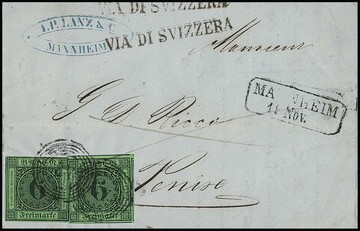 VIA DI SVIZZERA
J.P. LANZ & C
MANNHEIM
VIA DI SVIZZERA
Monsieur
MA HEIM
14 NOV.
G
Ricco
Venise
6 6
Freimarke Freimarke